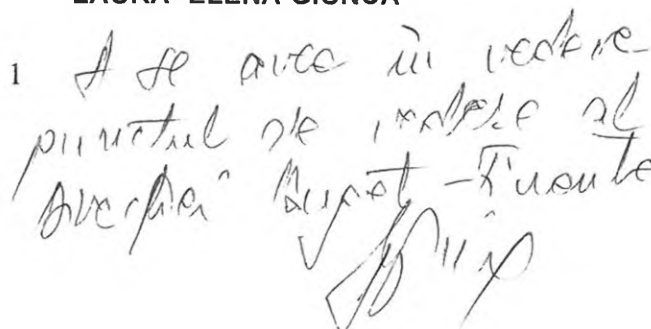 1 A se avea în vedere
punctul de vedere al
Direcției Buget - Finanțe